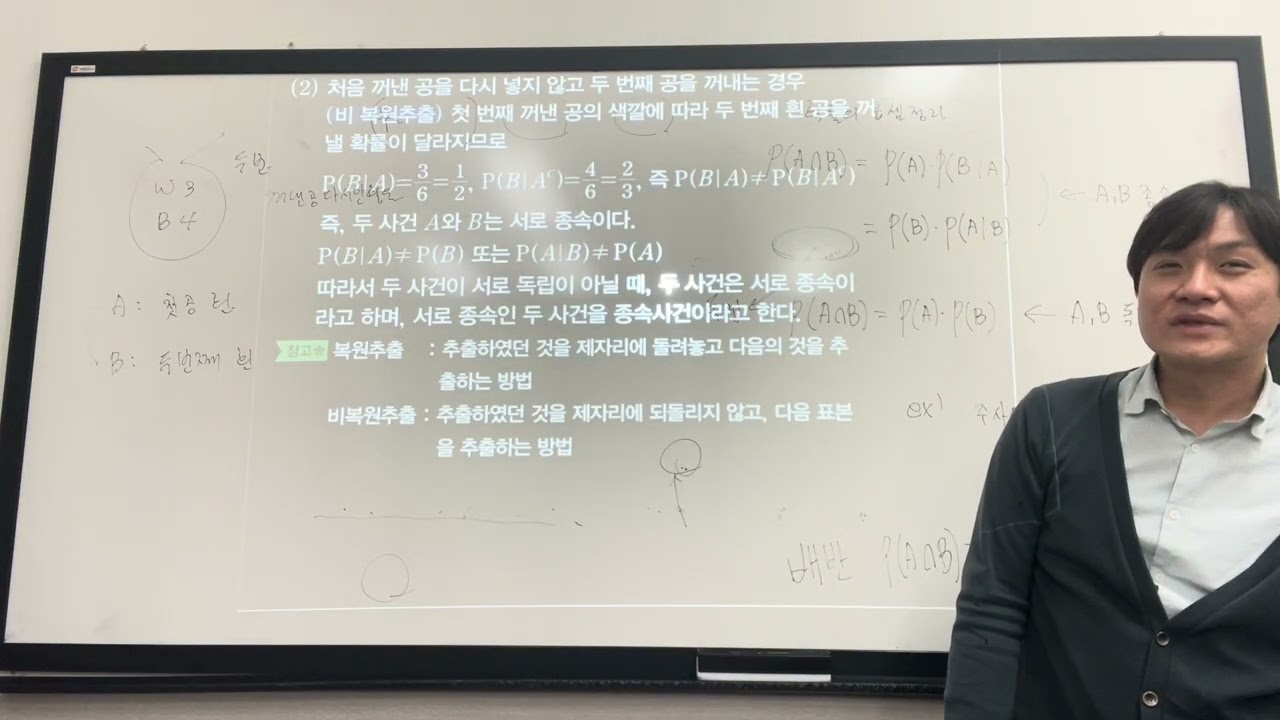 (2) 처음 꺼낸 공을 다시 넣지 않고 두 번째 공을 꺼내는 경우
(비 복원추출) 첫 번째 꺼낸 공의 색깔에 따라 두 번째 흰 공을 꺼
낼 확률이 달라지므로
P(B|A)=3/6=1/2, P(B|Aᶜ)=4/6=2/3, 즉 P(B|A)≠P(B|Aᶜ)
즉, 두 사건 A와 B는 서로 종속이다.
P(B|A)≠P(B) 또는 P(A|B)≠P(A)
따라서 두 사건이 서로 독립이 아닐 때, 두 사건은 서로 종속이
라고 하며, 서로 종속인 두 사건을 종속사건이라고 한다.
참고 복원추출 : 추출하였던 것을 제자리에 돌려놓고 다음의 것을 추
출하는 방법
비복원추출 : 추출하였던 것을 제자리에 되돌리지 않고, 다음 표본
을 추출하는 방법
W 3
B 4
두번
A: 첫
B: 두번째 흰
P(A∩B) = P(A)·P(B|A)
= P(B)·P(A|B)
← A,B 종속
P(A∩B) = P(A)·P(B) ← A,B
ex)
배반 P(A∩B)=